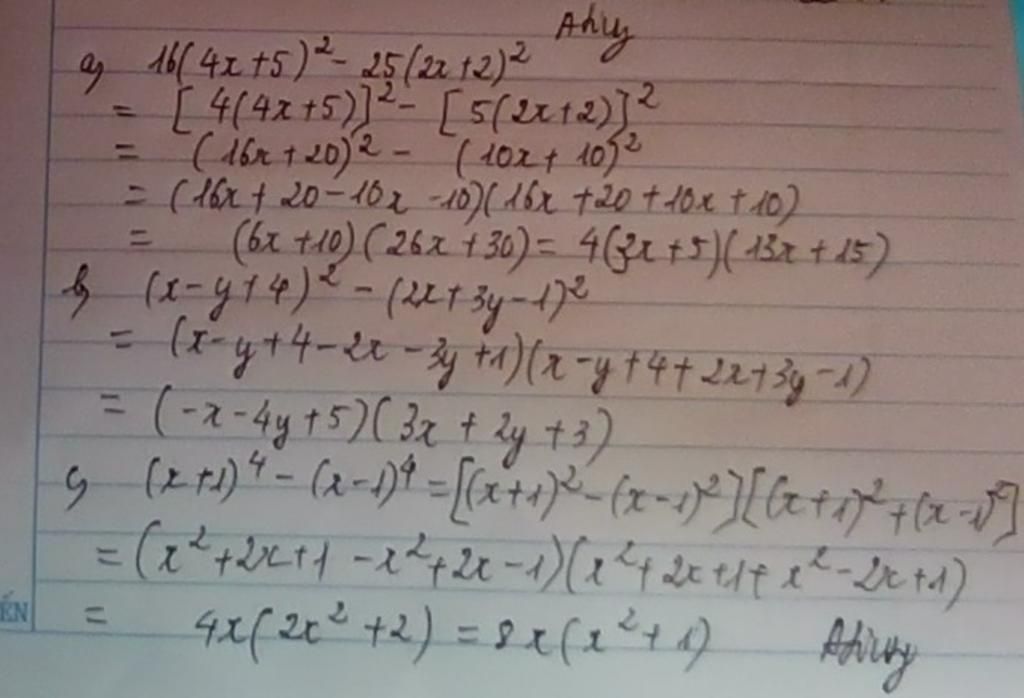 Ahvy
a) 16(4x+5)² - 25(2x+2)²
= [4(4x+5)]² - [5(2x+2)]²
= (16x+20)² - (10x+10)²
= (16x+20-10x-10)(16x+20+10x+10)
= (6x+10)(26x+30) = 4(3x+5)(13x+15)
b) (x-y+4)² - (2x+3y-1)²
= (x-y+4-2x-3y+1)(x-y+4+2x+3y-1)
= (-x-4y+5)(3x+2y+3)
c) (x+1)⁴ - (x-1)⁴ = [(x+1)² - (x-1)²][(x+1)² + (x-1)²]
= (x²+2x+1-x²+2x-1)(x²+2x+1+x²-2x+1)
ẾN
= 4x(2x²+2) = 8x(x²+1)